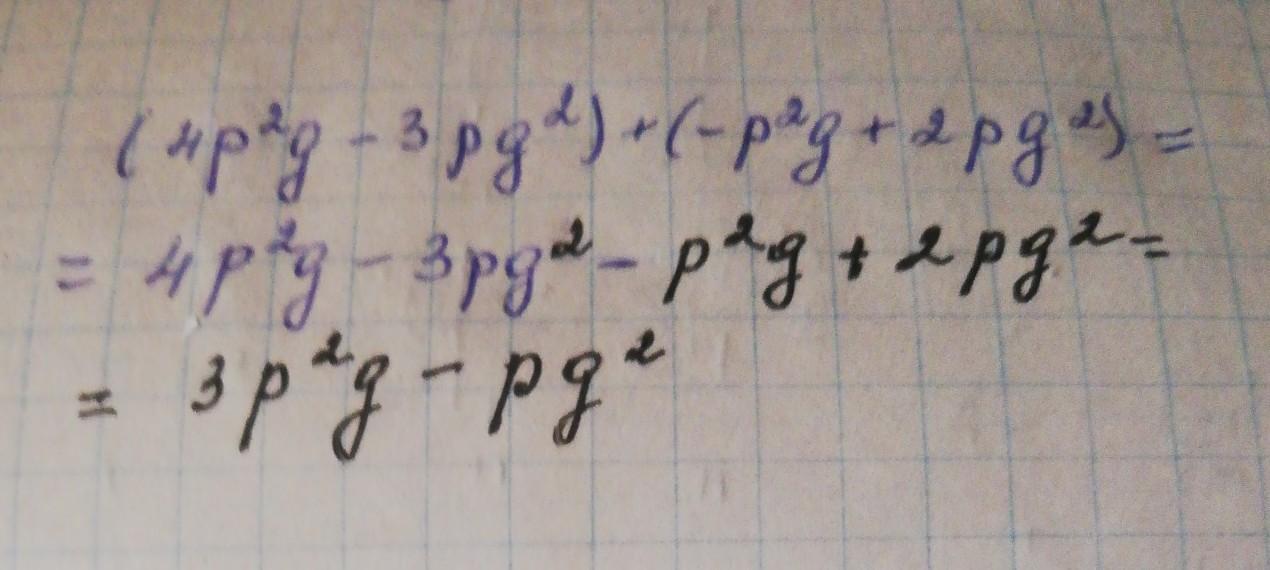 (4p²g - 3pg²) + (-p²g + 2pg²) =
= 4p²g - 3pg² - p²g + 2pg² =
= 3p²g - pg²